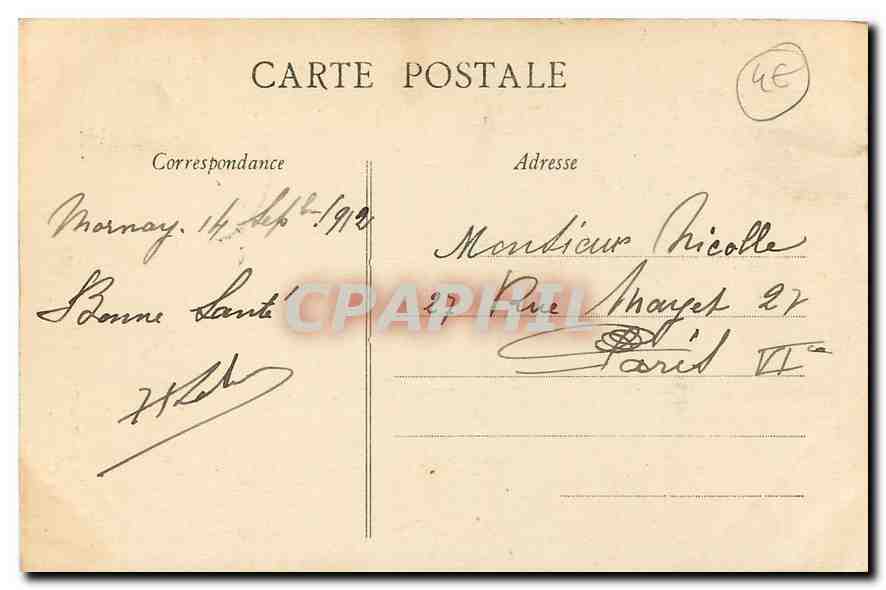 CARTE POSTALE
4€
Correspondance
Mornay. 14 Septbre 1912
Bonne Santé
Adresse
Monsieur Nicolle
27 Rue Mayet 27
Paris VIe
CPAPHIL